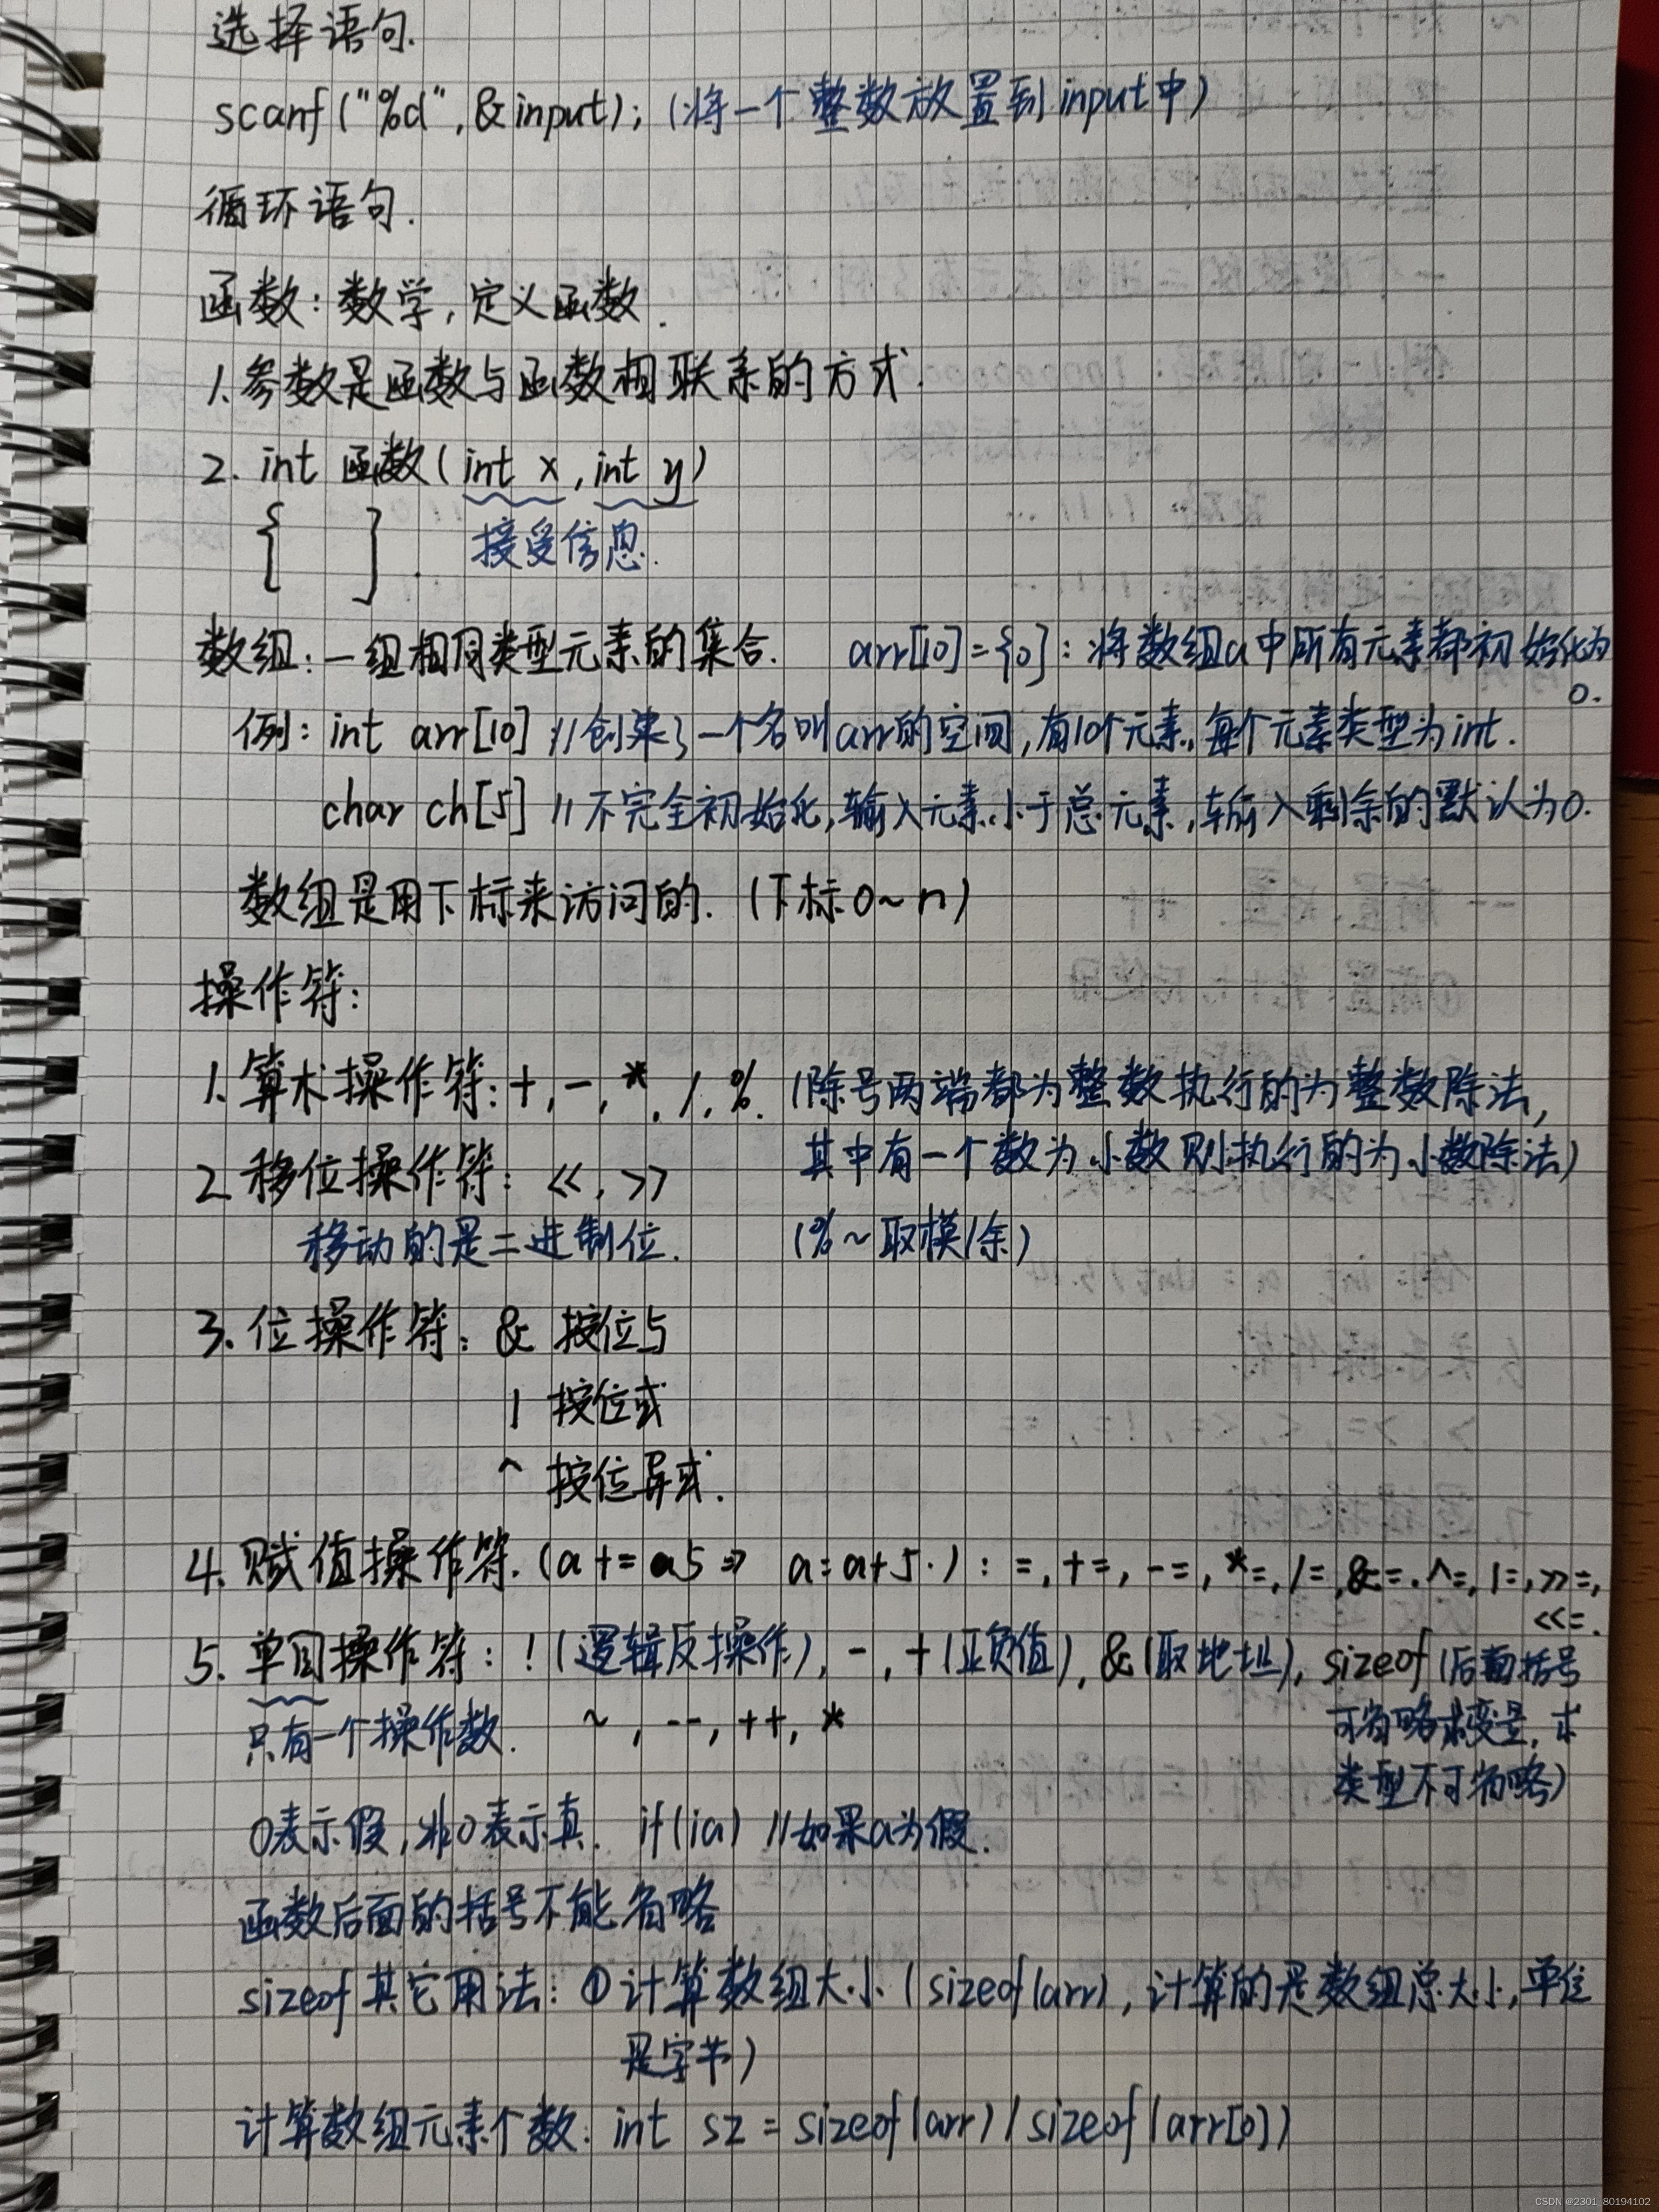 选择语句.
scanf("%d",&input); (将一个整数放置到input中)
循环语句.
函数:数学,定义函数.
1.参数是函数与函数相联系的方式.
2. int 函数(int x,int y)
{ }. 接受信息.
数组:一组相同类型元素的集合. arr[10]={0}:将数组a中所有元素都初始化为
0.
例: int arr[10] //创建了一个名叫arr的空间,有10个元素,每个元素类型为int.
char ch[5] //不完全初始化,输入元素小于总元素,输入剩余的默认为0.
数组是用下标来访问的. (下标0~n)
操作符:
1.算术操作符:+,-,*,/,%. (除号两端都为整数执行的为整数除法,
其中有一个数为小数则执行的为小数除法)
2.移位操作符: <<,>>
移动的是二进制位. (%~取模/余)
3.位操作符: & 按位与
| 按位或
^ 按位异或.
4.赋值操作符.(a+=a5⇒ a=a+5.):=,+=,-=,*=,/=,&=.^=,|=,>>=,
<<=.
5.单目操作符:!(逻辑反操作),-,+(正负值),&(取地址),sizeof(后面括号
只有一个操作数. ~,--,++,* 可省略求变量,求
类型不可省略)
0表示假,非0表示真. if(!a) //如果a为假.
函数后面的括号不能省略
sizeof其它用法:①计算数组大小(sizeof(arr),计算的是数组总大小,单位
是字节)
计算数组元素个数:int sz = sizeof(arr)/sizeof(arr[0])
CSDN @2301_80194102